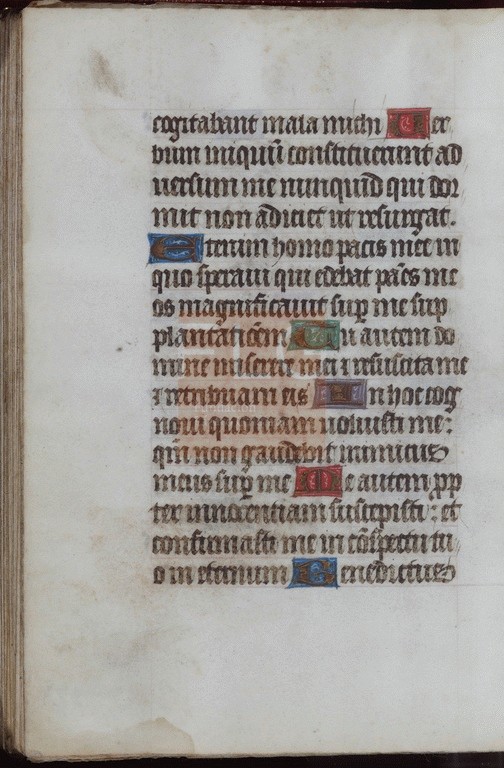 cogitabant mala michi Uer
bum iniquū constituerunt ad
uersum me nunquid qui dor
mit non adiciet ut resurgat.
Etenim homo pacis mee in
quo speraui qui edebat pāes me
os magnificauit sup me sup
plantātiōem Tu autem do
mine miserere mei ⁊ resuscita me
⁊ retribuam eis In hoc cog
noui quoniam uoluisti me:
qm̄ non gaudebit inimicus
meus sup me Me autem ꝓp
ter innocentiam suscepisti: et
confirmasti me in cōspectu tu
o in eternum Benedictus